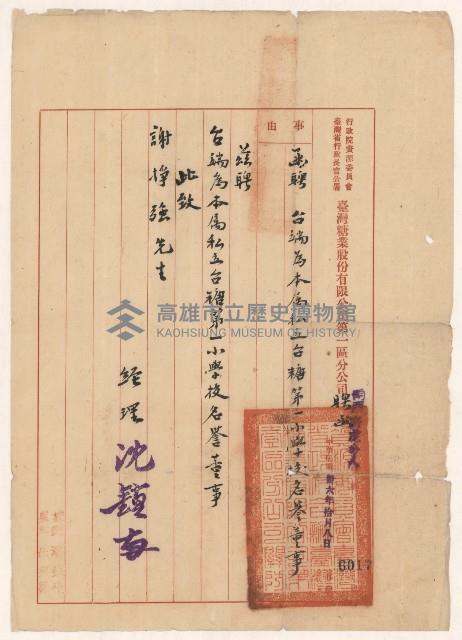 行政院資源委員會
臺灣省行政長官公署
臺灣糖業股份有限公司第一區分公司
聘函
事由
函聘 台端為本屬私立台糖第一小學校名譽董事
卅六年拾月八日
6017
茲聘
台端為本屬私立台糖第一小學校名譽董事
此致
謝掙強先生
經理 沈鎮南
高雄市立歷史博物館
KAOHSIUNG MUSEUM OF HISTORY